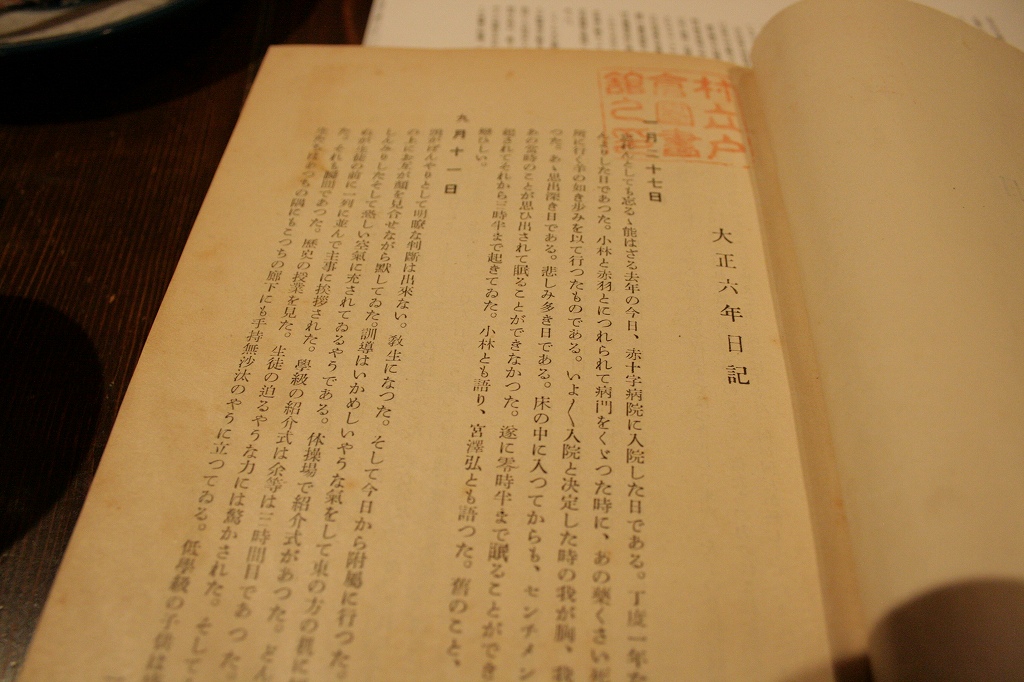 大正六年日記
一月二十七日
忘れんとしても忘るゝ能はざる去年の今日、赤十字病院に入院した日である。丁度一年た
んよりした日であつた。小林と赤羽とにつれられて病門をくゞつた時に、あの藥くさい死
所に行く羊の如き歩みを以て行つたものである。いよ〱入院と决定した時の我が胸、我
つた。あゝ思出深き日である。悲しみ多き日である。床の中に入つてからも、センチメン
あの當時のことが思ひ出されて眠ることができなかつた。遂に零時半まで眠ることができ
起されてそれから三時半まで起きてゐた。小林とも語り、宮澤弘とも語つた。舊のこと、
戀ひしい。
九月十一日
頭がぼんやりとして明瞭な判斷は出來ない。敎生になつた。そして今日から附屬に行つた。
の上にお互が顏を見合せながら默してゐた。訓導はいかめしいやうな氣をして東の方の机に
しんみりしたそして悲しい空氣に充されてゐるやうである。体操場で紹介式があつた。どん
ぬが生徒の前に一列に並んで主事に挨拶された。學級の紹介式は余等は三時間目であつた。
た。それも瞬間であつた。歷史の授業を見た。生徒の迫るやうな力には驚かされた。そして
生たちはあつちの隅にもこつちの廊下にも手持無沙汰のやうに立つてゐる。低學級の子供は
林立戸
會圖書
館之